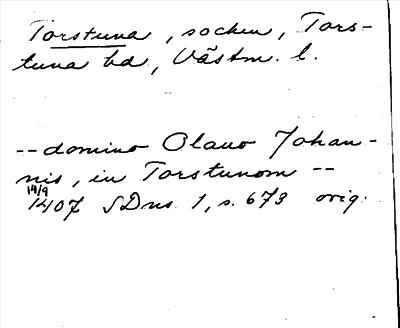 Torstuna, socken, Tors-
tuna hd, Västm. l.
-- domino Olauo Johan-
nis, in Torstunom --
14/9
1407 SDns 1, s. 673 orig.